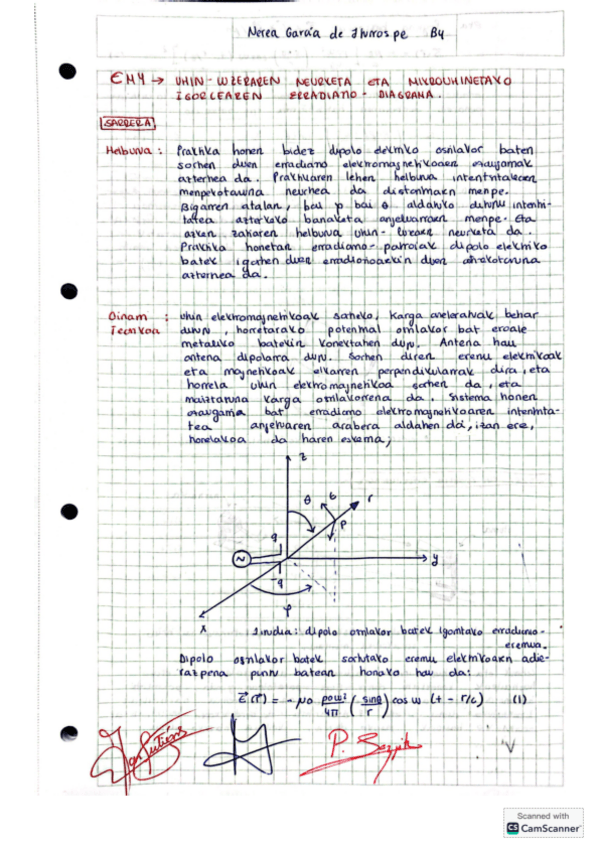 Nerea García de Iturrospe B4
EM4 → UHIN-LUZERAREN NEURKETA ETA MIKROUHINETAKO
IGORLEAREN ERRADIAZIO-DIAGRAMA.
SARRERA
Helburua : Praktika honen bidez dipolo elektriko oszilakor baten
sortzen duen erradiazio elektromagnetikoaren ezaugarriak
aztertzea da. Praktikaren lehen helburua intentsitatearen
menpekotasuna neurtzea da distantziaren menpe.
Bigarren atalan, bai φ bai θ aldatuko dituzu intentsi-
tatea aztertzeko banaketa anjeluarraren menpe. Eta
azken zatiaren helburua uhin-luzeraren neurketa da.
Praktika honetan erradiazio-patroiak dipolo elektriko
batek igortzen duen erradiazioarekin duen
aztertzea da.
Oinarri : Uhin elektromagnetikoak sortzeko, karga azeleratuak behar
Teorikoa dituzu, horretarako potentzial oszilakor bat eroale
metaliko batekin konektatzen dugu. Antena hau
antena dipolarra dugu. Sortzen diren eremu elektrikoak
eta magnetikoak elkarren perpendikularrak dira, eta
horrela uhin elektromagnetikoa sortzen da, eta
maiztasuna karga oszilakorrena da. Sistema honen
ezaugarria bat erradiazio elektromagnetikoaren intentsita-
tea anjeluaren arabera aldatzen da, izan ere,
horrelakoa da haren eskema;
z
θ
r
P
q
~
y
-q
φ
x
1.irudia: dipolo oszilakor batek igorritako erradiazio-
eremua.
Dipolo oszilakor batek sortutako eremu elektrikoaren adie-
razpena puntu batean honako hau da:
E⃗(r⃗) = - μ0 p0ω²/4π (sinθ/r) cos ω (t - r/c) (1)
Scanned with
CS CamScanner